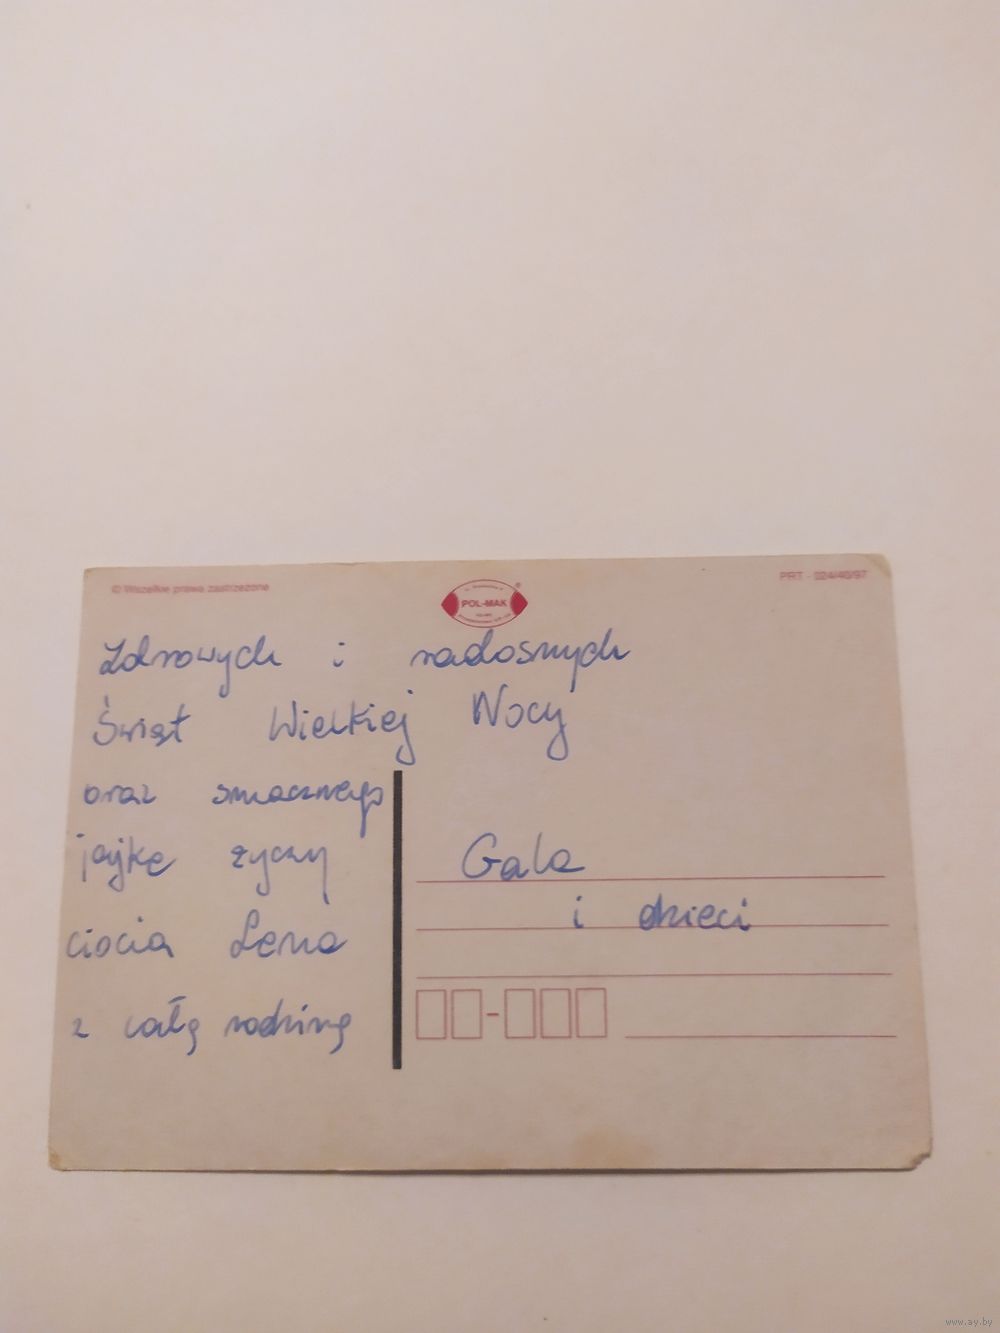 © Wszelkie prawa zastrzeżone
POL-MAK
PRT - 024/40/97
Zdrowych i radosnych
Świąt Wielkiej Nocy
oraz smacznego
jajka życzy
ciocia Lena
z całą rodziną
Gala
i dzieci
www.ay.by